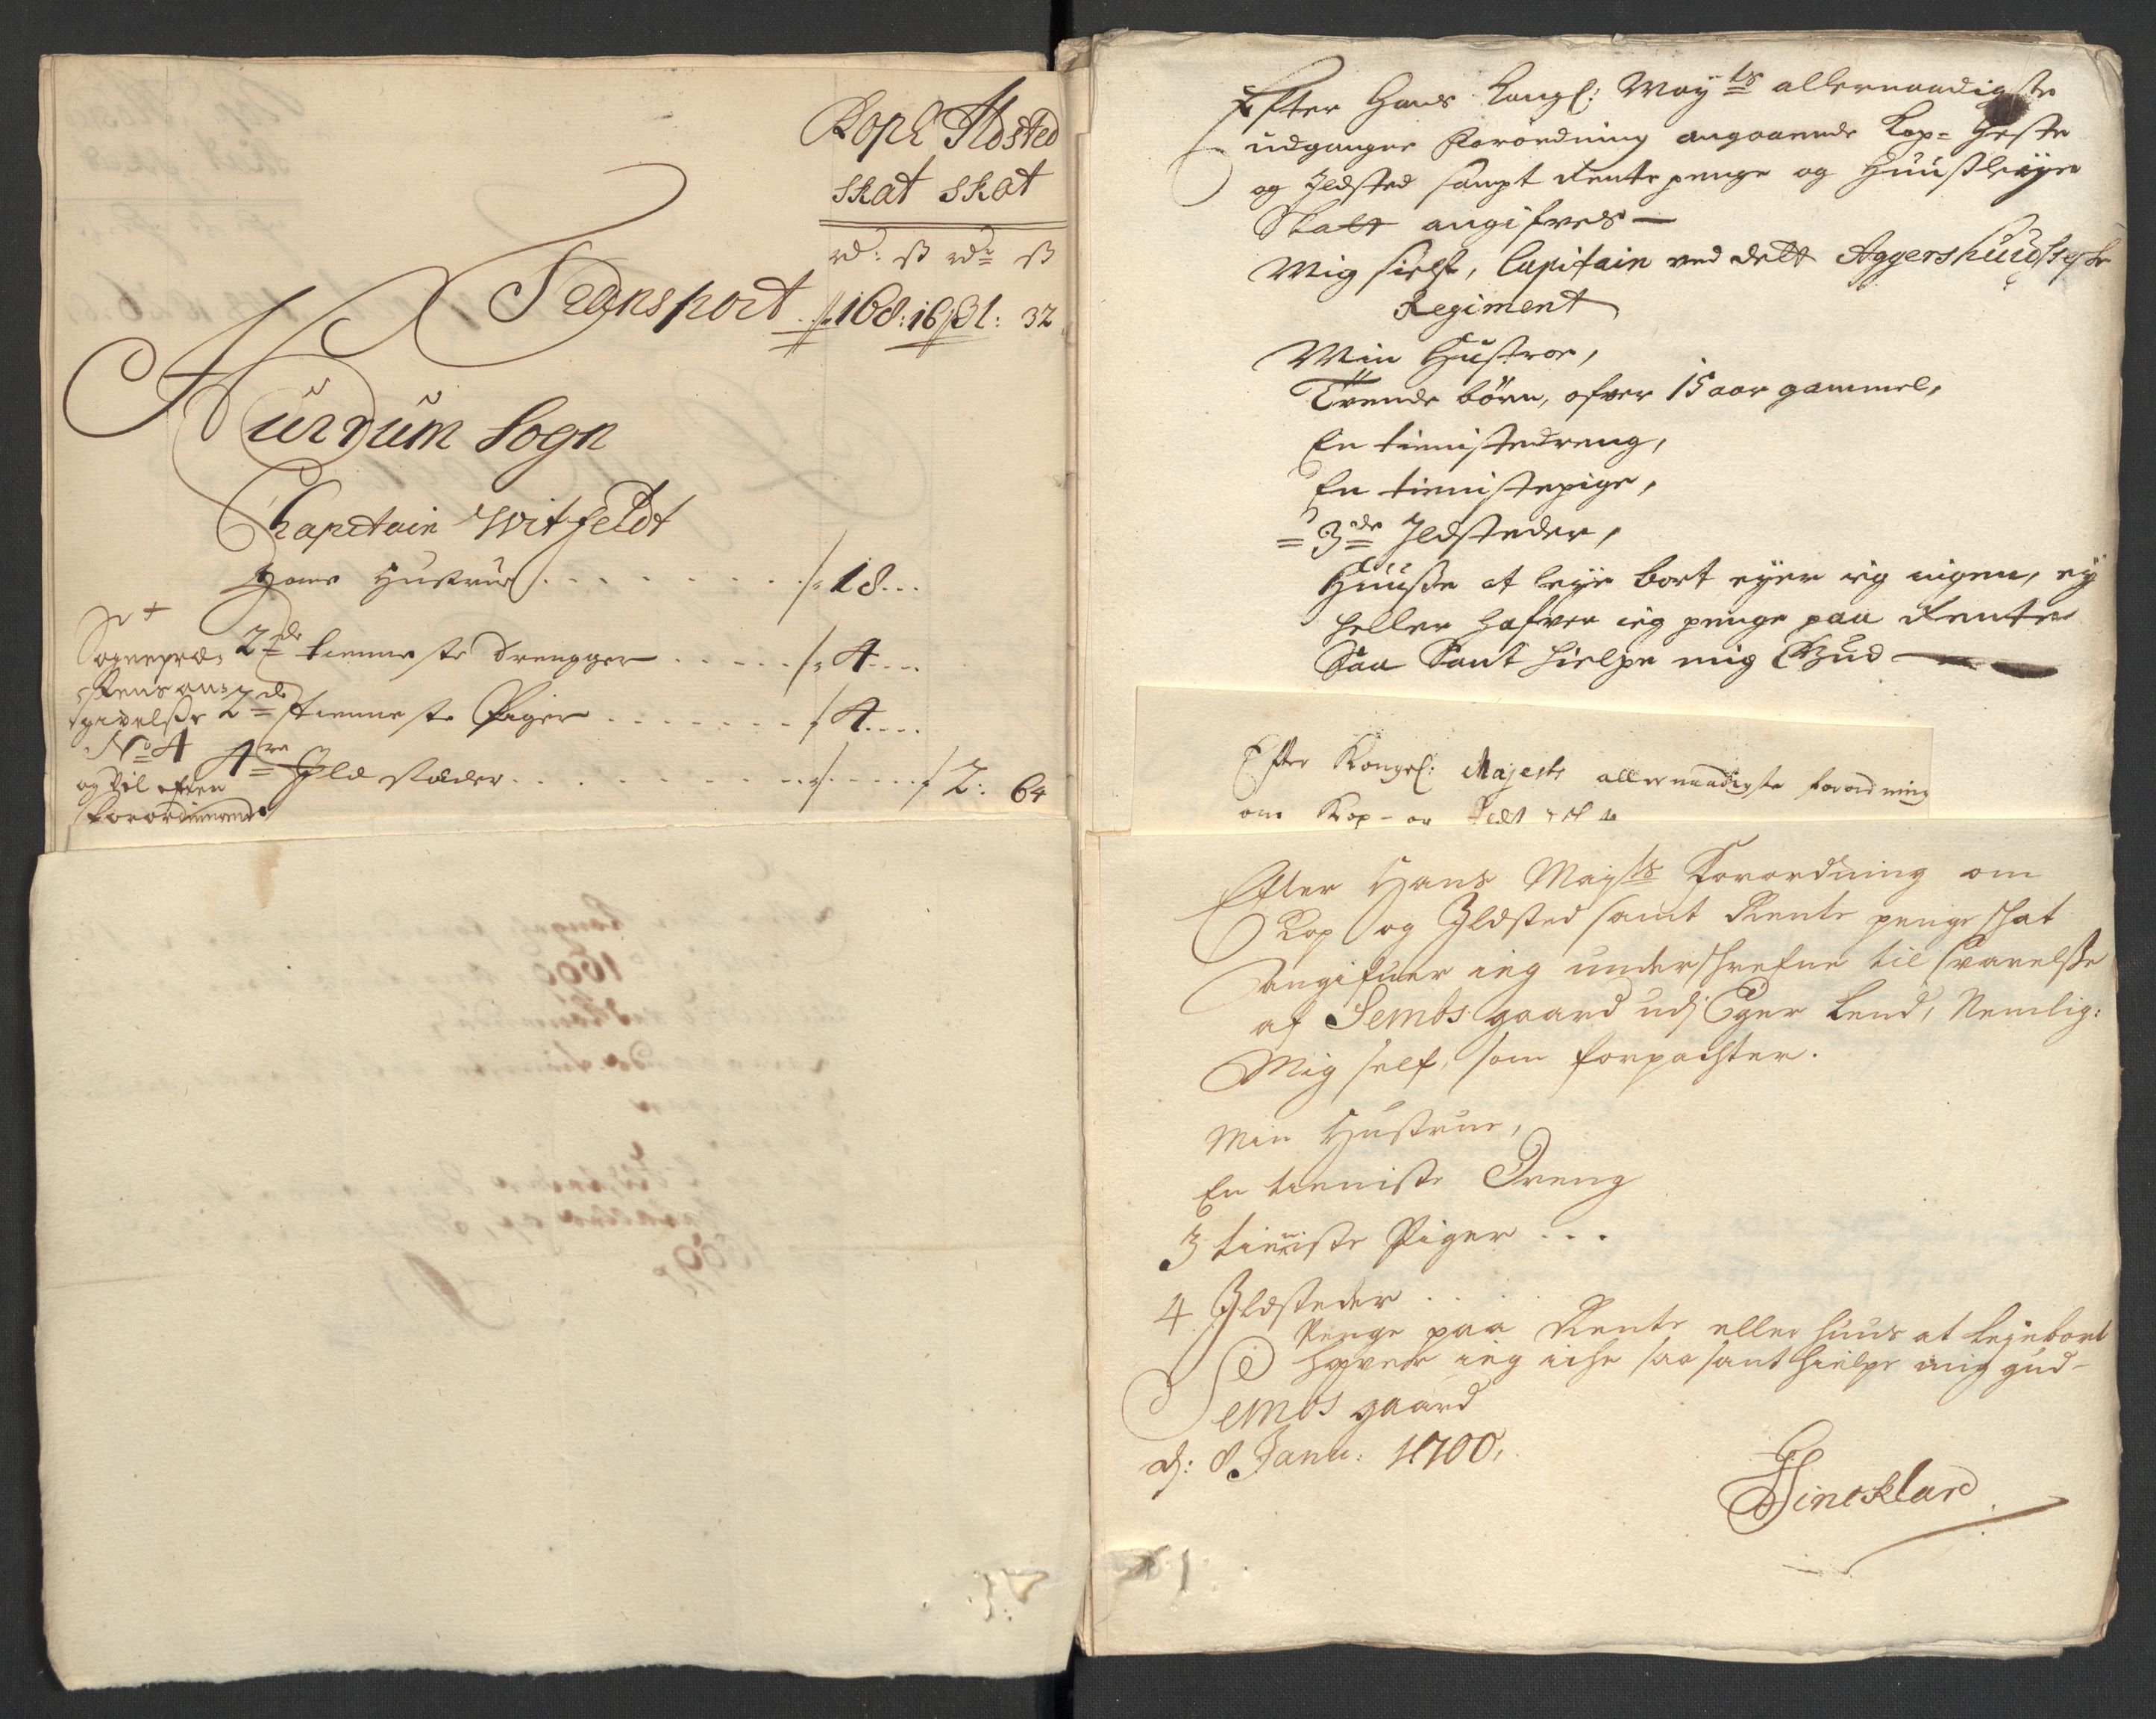 Kop & Ildsted
Skat Skat
rd: ß rdr ß
Transport 168:16 31: 32
Hurdum Sogn
Chapitain Witfeldt
Hans Hustrue 18
2de tienneste Drengger 4
Sognepræ-
stens an-
givelsse 2de tienneste Piger 4
No 4
4re Ild stæder 2: 64
og vel efter
forordningen
Efter Hans Kongl: Mayts allernaadigste
udgangne Forordning angaaende Kop- Heste
og Ildsted sampt Rente penge og Huußleye
Skatt angifves
Mig sielf, Capitain ved dett Aggershuusiske
Regiment
Min Hustroe,
Trende börn, ofver 15 aar gammel,
En tienistedreng,
En tienistepige,
3de Ildsteder,
Huuße at leye bort eyer ieg ingen, ey
heller hafver ieg penge paa Rente
Saa Sant hielpe mig Gud
Efter Kongel: Majests allernaadigste forordning
om Kop- og
Efter Hans Mayts Forordning om
Kop og Ildsted samt Rente penge schat
angifuer ieg underschrefne til svarelsse
af Sembs gaard udj Eger Lend, Nemlig:
Mig self, som forpachter.
Min Hustrue,
En tieniste Dreng
3 tieniste Piger ...
4 Ildsteder ..
Penge paa Rente eller huus at leje bort
hafver ieg iche saa sant hielpe mig gud-
Sembs gaard
dj: 8 Janu: 1700,